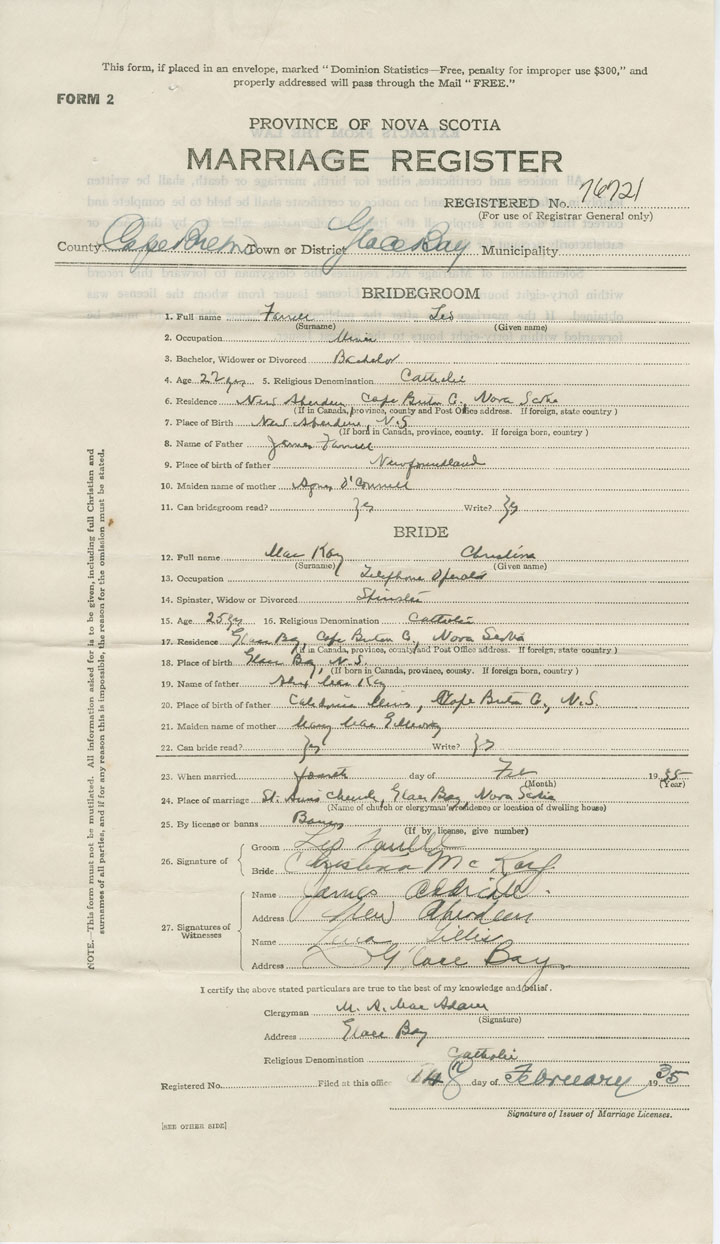 This form, if placed in an envelope, marked "Dominion Statistics—Free, penalty for improper use $300," and
properly addressed will pass through the Mail "FREE."
FORM 2
PROVINCE OF NOVA SCOTIA
MARRIAGE REGISTER
REGISTERED No. 76721
(For use of Registrar General only)
County Cape Breton Town or District Glace Bay Municipality
BRIDEGROOM
1. Full name Farrell Leo
(Surname) (Given name)
2. Occupation Miner
3. Bachelor, Widower or Divorced Bachelor
4. Age 22 yrs 5. Religious Denomination Catholic
6. Residence New Aberdeen Cape Breton Co., Nova Scotia
(If in Canada, province, county and Post Office address. If foreign, state country)
7. Place of Birth New Aberdeen, N.S.
(If born in Canada, province, county. If foreign born, country)
8. Name of Father James Farrell
9. Place of birth of father Newfoundland
10. Maiden name of mother Agnes O'Connell
11. Can bridegroom read? yes Write? yes
BRIDE
12. Full name Mac Kay Christina
(Surname) (Given name)
13. Occupation Telephone Operator
14. Spinster, Widow or Divorced Spinster
15. Age 25 yrs 16. Religious Denomination Catholic
17. Residence Glace Bay, Cape Breton Co., Nova Scotia
(If in Canada, province, county and Post Office address. If foreign, state country)
18. Place of birth Glace Bay, N.S.
(If born in Canada, province, county. If foreign born, country)
19. Name of father Alex Mac Kay
20. Place of birth of father Caledonia Mines, Cape Breton Co., N.S.
21. Maiden name of mother Mary Mac
22. Can bride read? yes Write? yes
23. When married fourth day of Feb 1935
(Month) (Year)
24. Place of marriage St. Anns Church, Glace Bay Nova Scotia
(Name of church or clergyman's residence or location of dwelling house)
25. By license or banns Banns
(If by license, give number)
26. Signature of Groom Leo Farrell
Bride Christina Mc Kay
27. Signatures of Witnesses
Name James
Address New Aberdeen
Name Gillis
Address Glace Bay
I certify the above stated particulars are true to the best of my knowledge and belief.
Clergyman M. A. Mac Adam
(Signature)
Address Glace Bay
Religious Denomination Catholic
Registered No. Filed at this office day of February 1935
Signature of Issuer of Marriage Licenses.
[SEE OTHER SIDE]
NOTE.—This form must not be mutilated. All information asked for is to be given, including full Christian and
surnames of all parties, and if for any reason this is impossible, the reason for the omission must be stated.